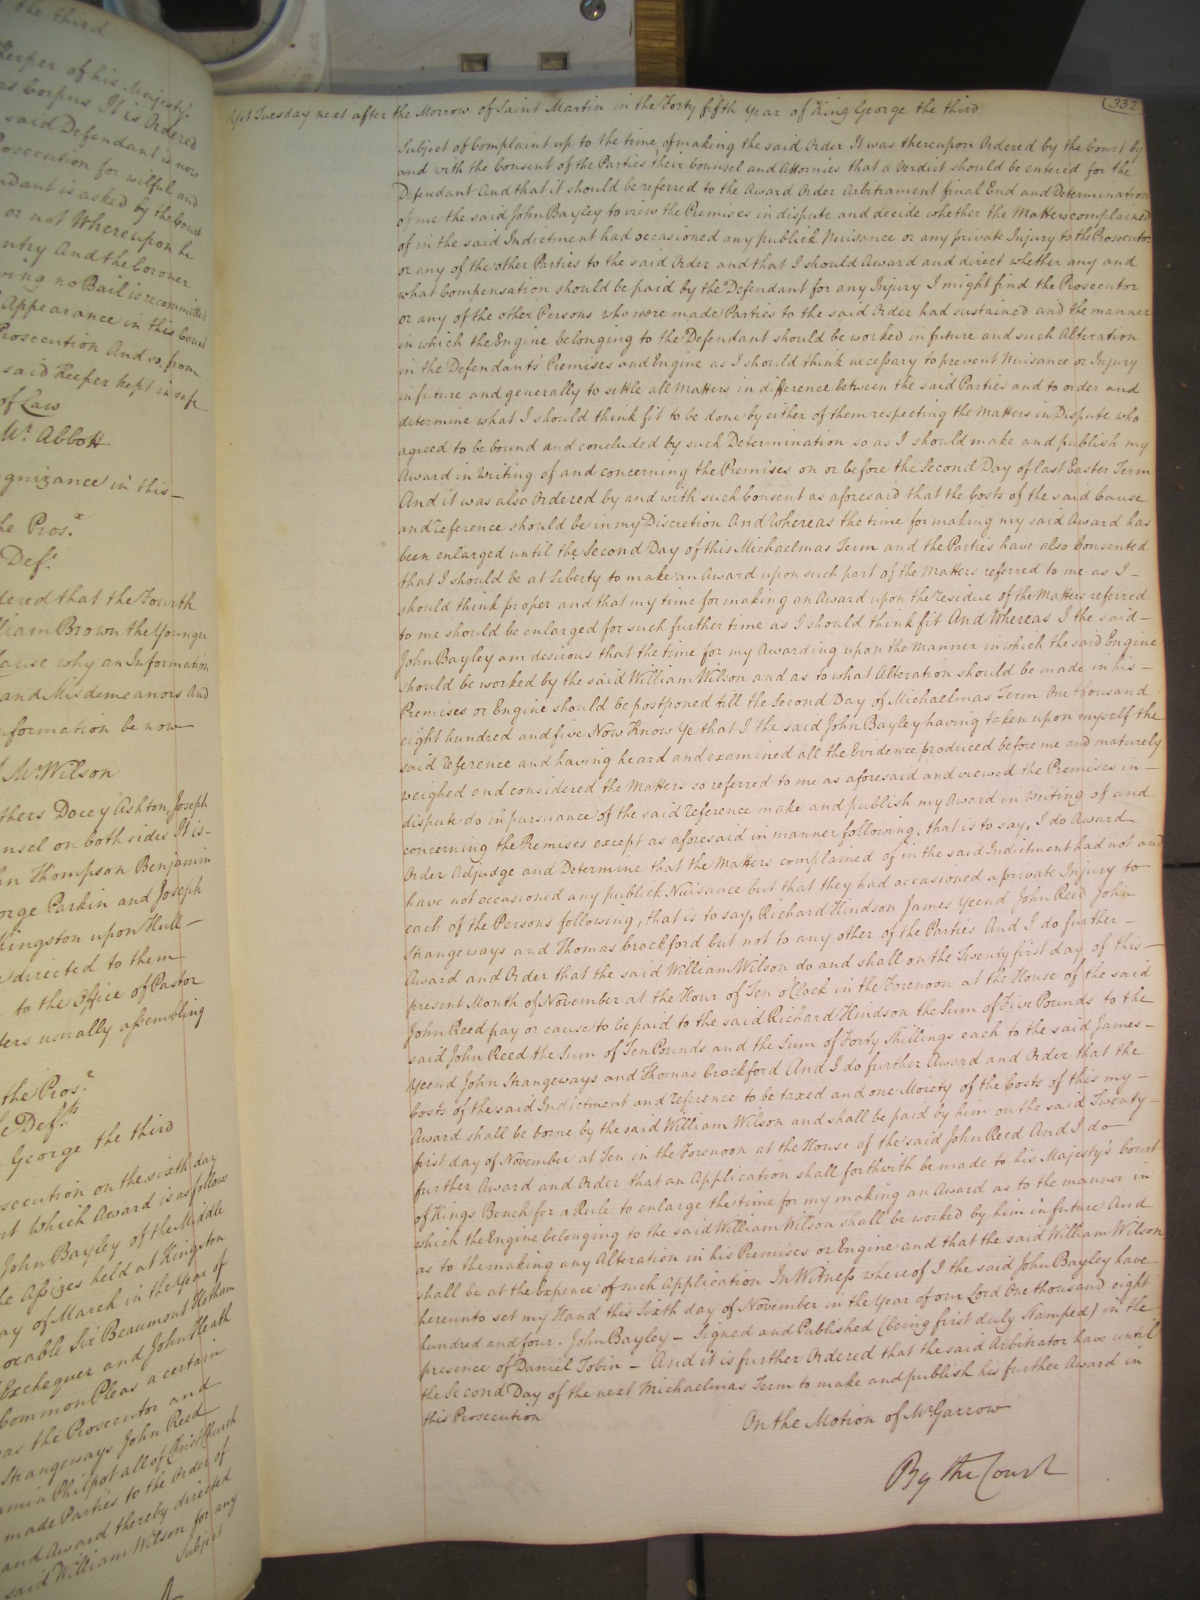 the third
Keeper of his Majesty's
Corpus It is Ordered
said Defendant is now
Prosecution for wilful and
Defendant is asked by the Court
or not Whereupon he
And the Coroner
having no Bail is recommitted
Appearance in this Court
Prosecution And so, from
said Keeper kept in safe
of Law
Mr. Abbott
Recognizance in this
the Prosr.
Deft.
Ordered that the Fourth
William Brown the Younger
Cause why an Information
and Misdemeanors And
Information be now
Mr. Wilson
others Docey Ashton, Joseph
Counsel on both sides It is
Thompson Benjamin
George Parkin and Joseph
Kingston upon Hull
directed to them
to the Office of Pastor
usually assembling
the Prosr.
Defts.
George the third
Prosecution on the sixth day
which Award is as follows
John Bayley of the Middle
the Assizes held at Kingston
day of March in the Year of
Honorable Sir Beaumont Hotham
Exchequer and John Heath
Common Pleas a certain
was the Prosecutor and
Strangeways John Reed
Benjamin Philpot all of Christ Church
made Parties to the Order of
and Award thereby directed
said William Wilson for any
Subject
332
Yet Tuesday next after the Morrow of Saint Martin in the Forty fifth Year of King George the third
Subject of Complaint up to the time of making the said Order It was thereupon Ordered by the Court by
and with the Consent of the Parties their Counsel and Attornies that a Verdict should be entered for the
Defendant And that it should be referred to the Award Order Arbitrament final End and Determination
of me the said John Bayley to view the Premises in dispute and decide whether the Matters complained
of in the said Indictment had occasioned any publick Nuisance or any private Injury to the Prosecutor
or any of the other Parties to the said Order and that I should Award and direct whether any and
what Compensation should be paid by the Defendant for any Injury I might find the Prosecutor
or any of the other Persons who were made Parties to the said Order had sustained and the manner
in which the Engine belonging to the Defendant should be worked in future and such Alteration
in the Defendant's Premises and Engine as I should think necessary to prevent Nuisance or Injury
in future and generally to settle all Matters in difference between the said Parties and to order and
determine what I should think fit to be done by either of them respecting the Matters in Dispute who
agreed to be bound and concluded by such Determination so as I should make and publish my
Award in Writing of and concerning the Premises on or before the Second Day of last Easter Term
And it was also Ordered by and with such Consent as aforesaid that the Costs of the said Cause
and reference should be in my Discretion And Whereas the time for making my said Award has
been enlarged until the Second Day of this Michaelmas Term and the Parties have also Consented
that I should be at Liberty to make an Award upon such part of the Matters referred to me as I
should think proper and that my time for making an Award upon the residue of the Matters referred
to me should be enlarged for such further time as I should think fit And Whereas I the said
John Bayley am desirous that the time for my Awarding upon the Manner in which the said Engine
should be worked by the said William Wilson and as to what Alteration should be made in his
Premises or Engine should be postponed till the Second Day of Michaelmas Term One thousand
eight hundred and five Now Know Ye that I the said John Bayley having taken upon myself the
said reference and having heard and examined all the Evidence produced before me and maturely
weighed and considered the Matters so referred to me as aforesaid and viewed the Premises in
dispute do in pursuance of the said Reference make and publish my Award in Writing of and
concerning the Premises except as aforesaid in manner following, that is to say, I do Award
Order Adjudge and Determine that the Matters complained of in the said Indictment had not and
have not occasioned any publick Nuisance but that they had occasioned a private Injury to
each of the Persons following, that is to say, Richard Hindson James Yeend John Reed John
Strangeways and Thomas Crockford but not to any other of the Parties And I do further
Award and Order that the said William Wilson do and shall on the Twenty first day of this
present Month of November at the Hour of Ten o'Clock in the Forenoon at the House of the said
John Reed pay or cause to be paid to the said Richard Hindson the Sum of Five Pounds to the
said John Reed the Sum of Ten Pounds and the Sum of Forty Shillings each to the said James
Yeend John Strangeways and Thomas Crockford And I do further Award and Order that the
Costs of the said Indictment and reference to be taxed and one Moiety of the Costs of this my
Award shall be borne by the said William Wilson and shall be paid by him on the said Twenty
first day of November at Ten in the Forenoon at the House of the said John Reed And I do
further Award and Order that an Application shall forthwith be made to his Majesty's Court
of Kings Bench for a Rule to enlarge the time for my making an Award as to the manner in
which the Engine belonging to the said William Wilson shall be worked by him in future And
as to the making any Alteration in his Premises or Engine and that the said William Wilson
shall be at the Expence of such Application In Witness whereof I the said John Bayley have
hereunto set my Hand this Sixth day of November in the Year of our Lord One thousand eight
hundred and four. John Bayley – Signed and Published (being first duly Stamped) in the
presence of Daniel Tobin – And it is further Ordered that the said Arbitrator have until
the Second Day of the next Michaelmas Term to make and publish his further Award in
this Prosecution
On the Motion of Mr. Garrow
By the Court